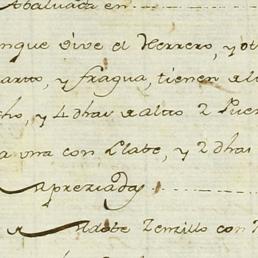 Abaluada en
nque vive el Herrero, y ot
arto, y fragua, tienen
ho, y 4 dhas x alto 2 Puer
a una con Llabe, y 2 dhas
Apreziada
x Adobe Zenzillo con